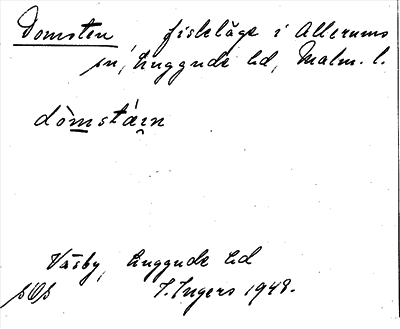 Domsten, fiskeläge i Allerums
sn, Luggude hd, Malm. l.
dòmstáɪn
Väsby, Luggude hd
I. Ingers 1948.